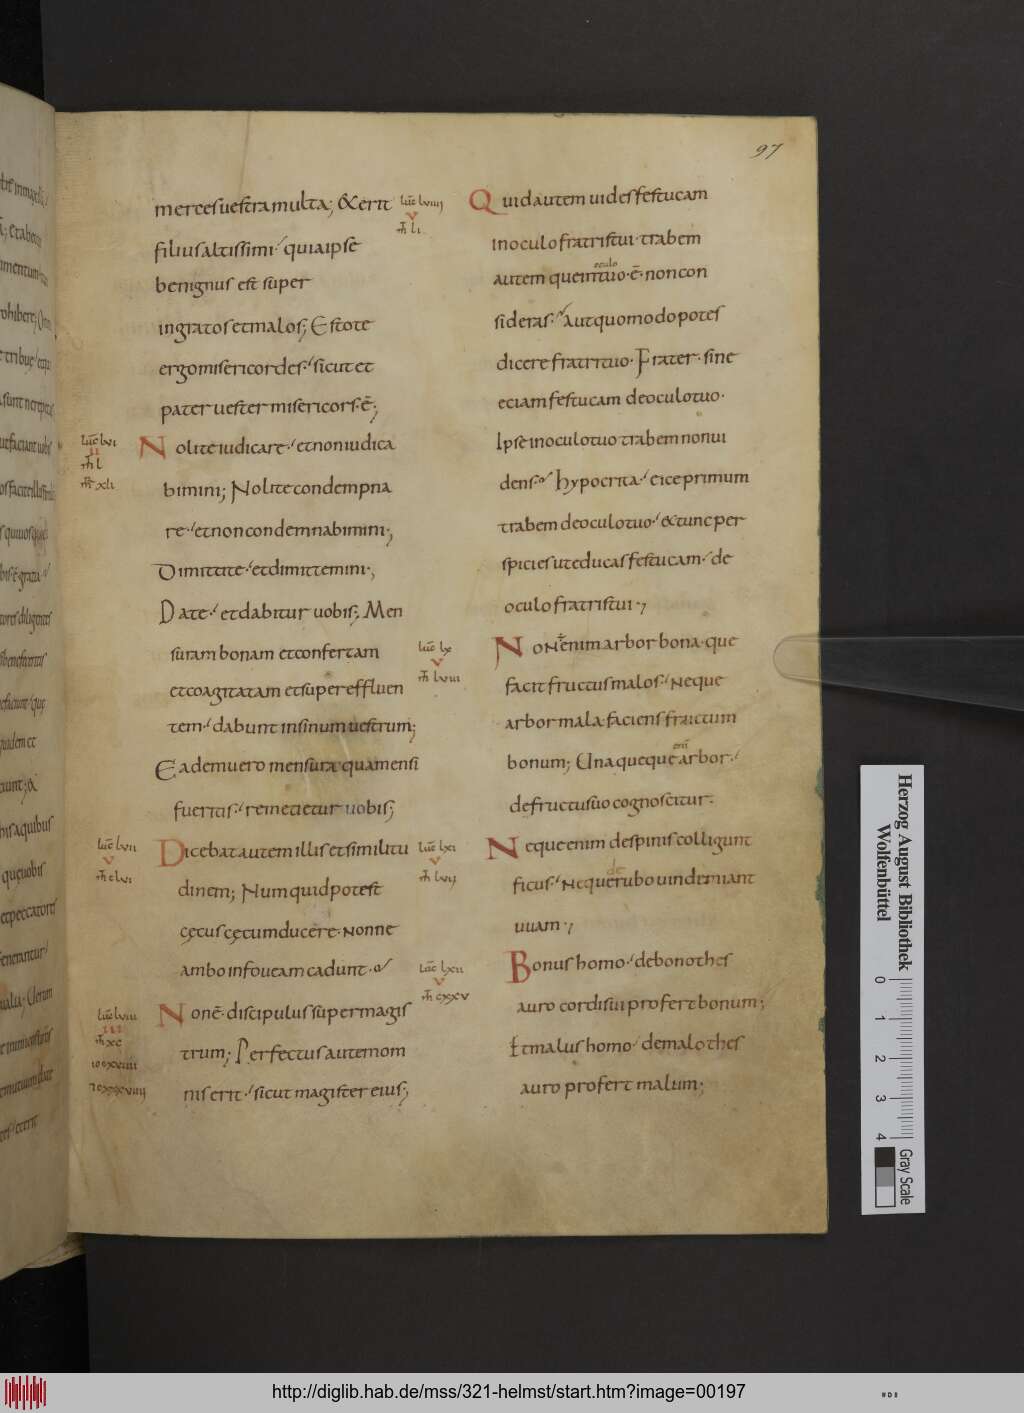 97
merces uestra multa; & erit
filius altissimi· quia ipse
benignus est super
ingratos et malos; Estote
ergo misericordes· sicut et
pater uester misericors· ē;
Nolite iudicare· et non iudica
bimini; Nolite condempna
re· et non condemnabimini;
Dimittite· et dimittemini;
Date· et dabitur uobis; Men
suram bonam et confertam
et coagitatam et supereffluen
tem· dabunt in sinum uestrum;
Eadem uero mensura qua mensi
fueritis· remetietur uobis;
Dicebat autem illis et similitu
dinem; Numquid potest
cęcus cęcum ducere· Nonne
ambo in foueam cadunt·
Non ē· discipulus super magis
trum; Perfectus autem om
nis erit· sicut magister eius;
luc lviiii
mt li
luc lvi
mt l
mr xli
luc lvii
mt clvi
luc lviii
iii
mt xc
Quid autem uides festucam
in oculo fratris tui· trabem
oculo
autem que in tuo· ē· non con
sideras· aut quomodo potes
dicere fratri tuo· Frater· sine
eciam festucam de oculo tuo·
Ipse in oculo tuo trabem non ui
dens· hypocrita· eice primum
trabem de oculo tuo· & tunc per
spicies ut educas festucam· de
oculo fratris tui·;
Non ē enim arbor bona· que
facit fructus malos· Neque
arbor mala· faciens fructum
bonum; Una queque arbor·
de fructu suo cognoscitur·
Neque enim de spinis colligunt
de
ficus· Neque rubo uindemiant
uuam·;
Bonus homo· de bono thes
auro cordis sui profert bonum;
Et malus homo· de malo thes
auro profert malum;
luc lx
mt lviii
luc lxi
mt lviiii
luc lxii
mt cxxv
Herzog August Bibliothek
Wolfenbüttel
0 1 2 3 4
Gray Scale
http://diglib.hab.de/mss/321-helmst/start.htm?image=00197